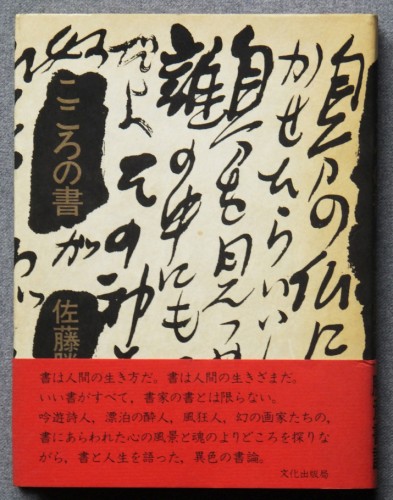 こころの書
佐藤
自分の仏に
かせたらいい
自分を見つ
誰の中にも
その神
書は人間の生き方だ。書は人間の生きざまだ。
いい書がすべて，書家の書とは限らない。
吟遊詩人，漂泊の酔人，風狂人，幻の画家たちの，
書にあらわれた心の風景と魂のよりどころを探りな
がら，書と人生を語った，異色の書論。
文化出版局